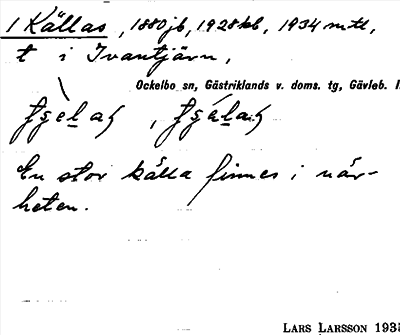 1 Källas, 1880 jb, 1928 kb, 1934 mtl,
t i Ivantjärn,
Ockelbo sn, Gästriklands v. doms. tg, Gävleb. l
En stor källa finnes i när-
heten.
LARS LARSSON 1935